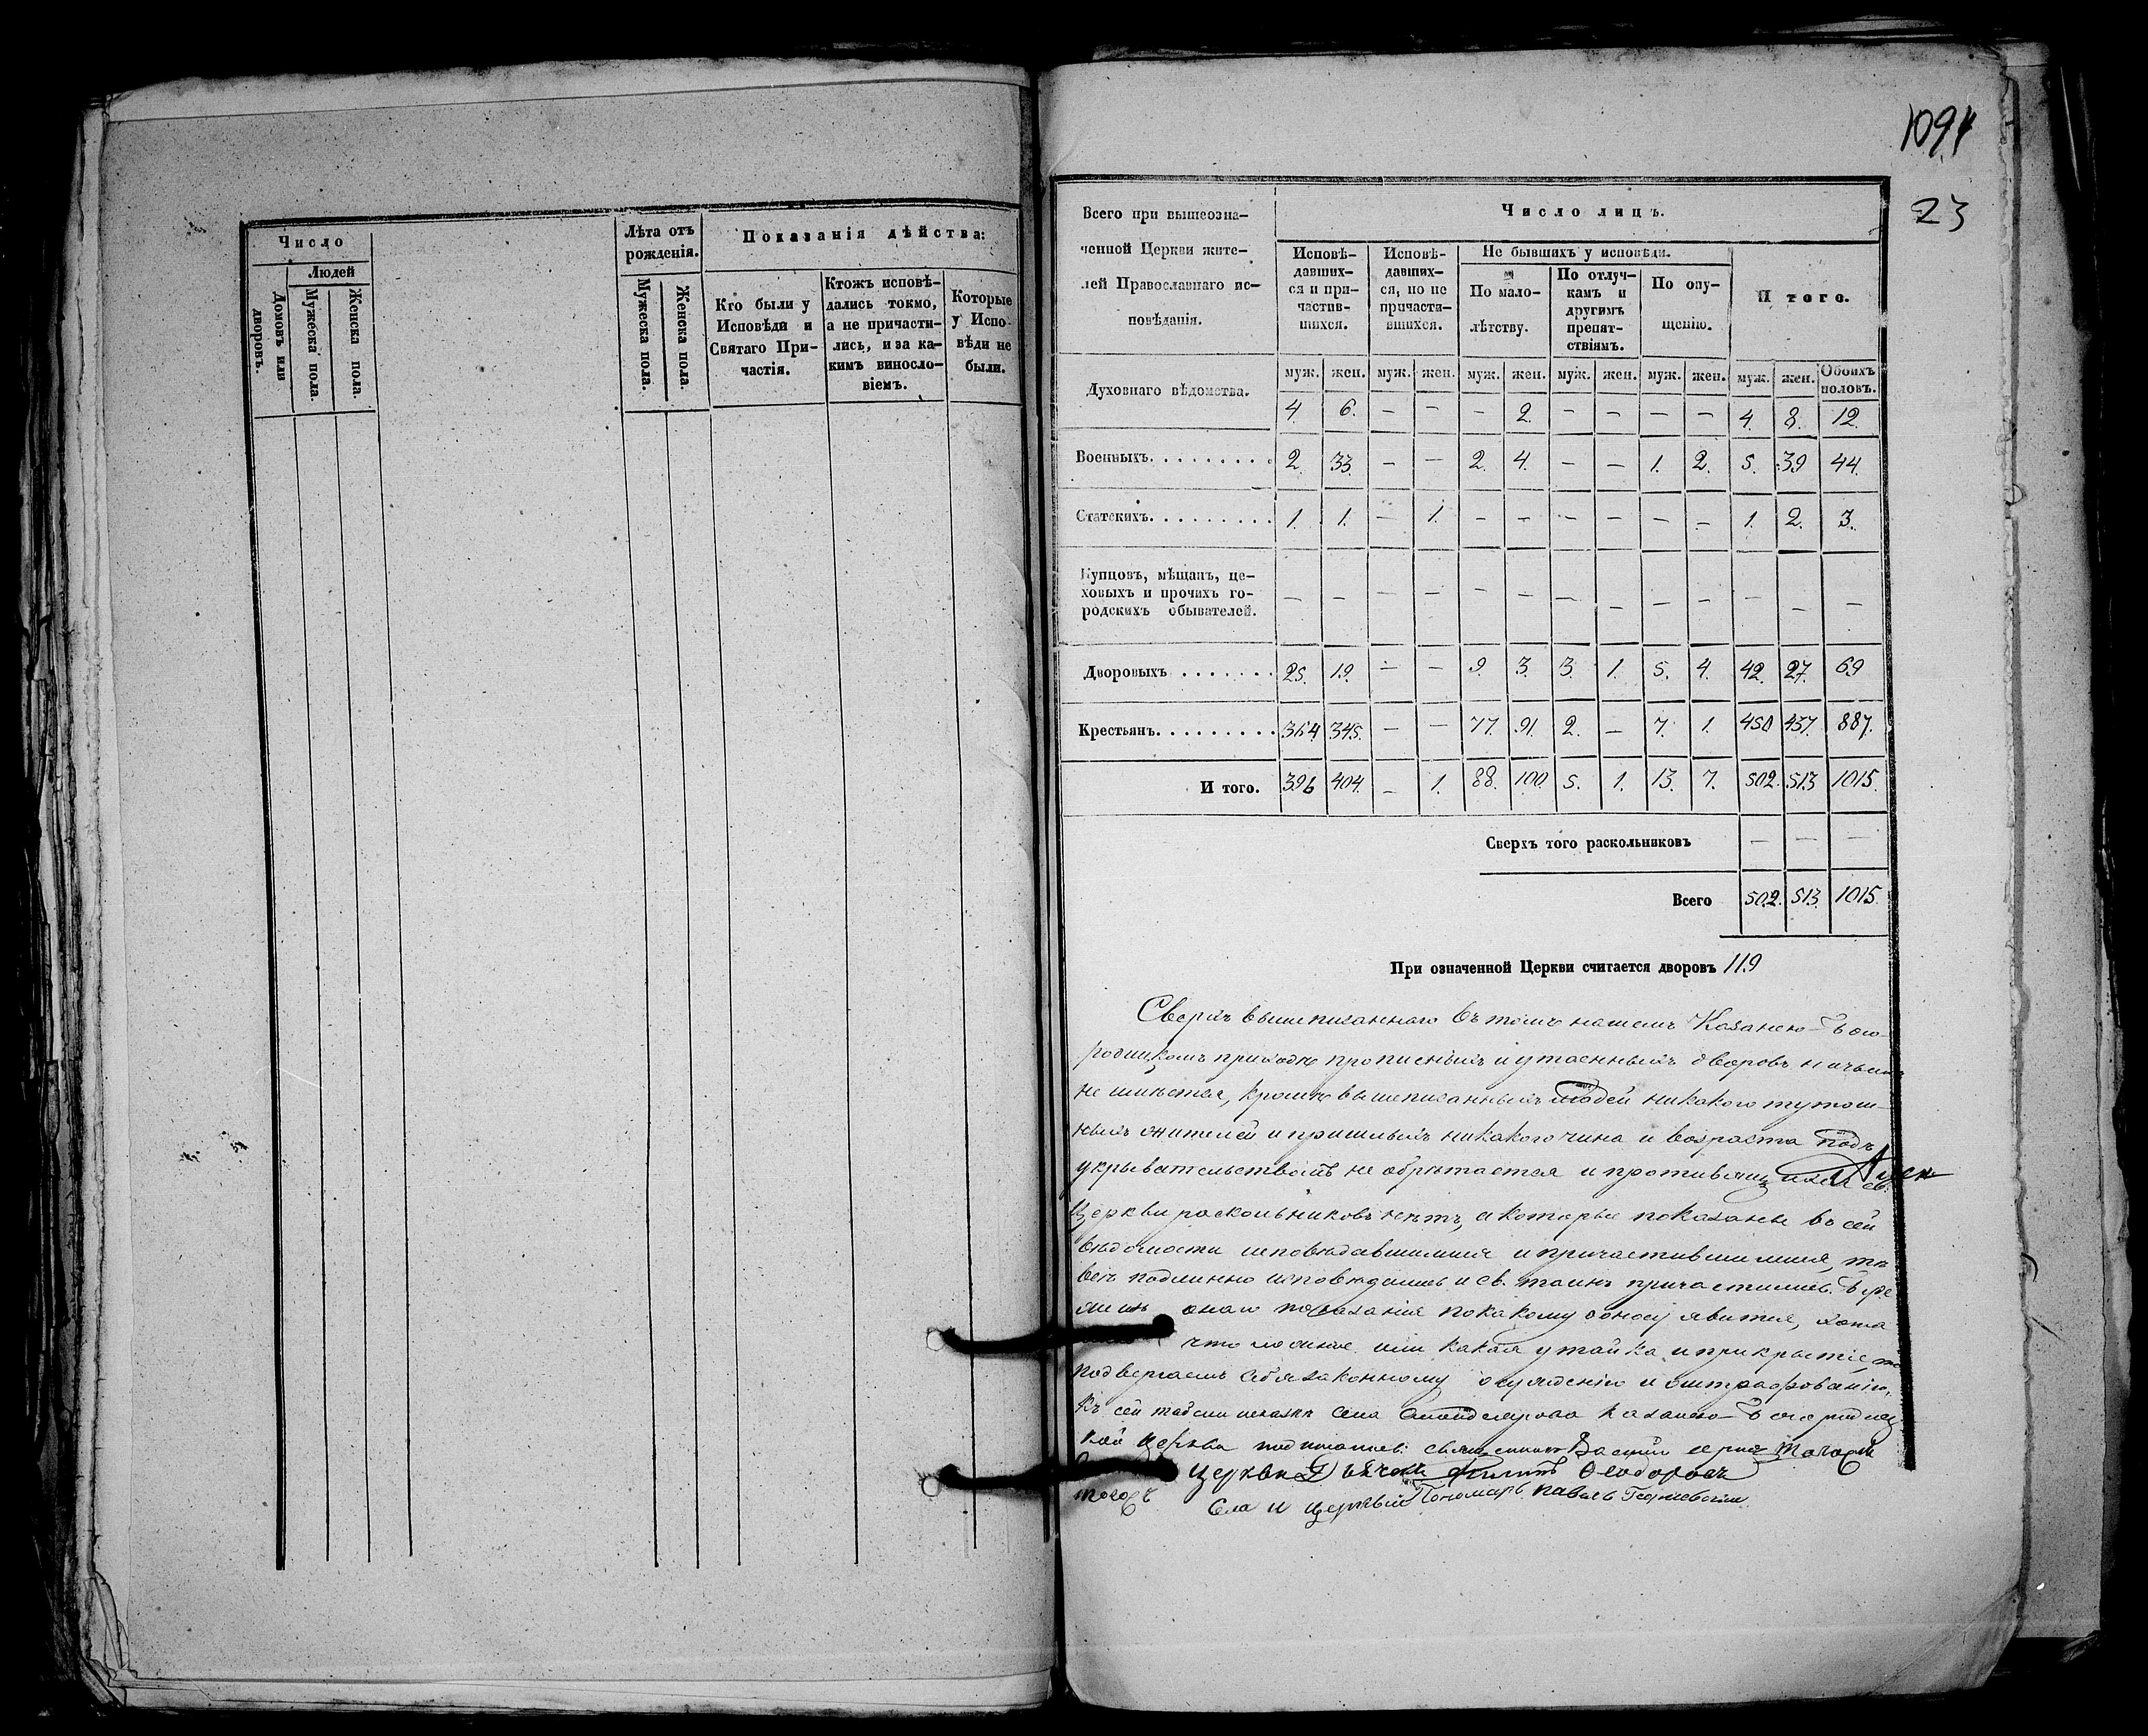 Число
Людей
Домовъ или дворовъ.
Мужеска пола.
Женска пола.
Лѣта отъ
рожденія.
Мужеска пола.
Женска пола.
Показанія дѣйства:
Кто были у
Исповѣди и
Святаго При-
частія.
Ктожъ исповѣ-
дались токмо,
а не причасти-
лись, и за ка-
кимъ винослo-
віемъ.
Которые
у Испо-
вѣди не
были.
109
23
Всего при вышеозна-
ченной Церкви жите-
лей Православнаго ис-
повѣданія.
Число лицъ.
Исповѣ-
давших-
ся и при-
частив-
шихся.
Исповѣ-
давших-
ся, но не
причасти-
вшихся.
Не бывшихъ у исповѣди.
По мало-
лѣтству.
По отлуч-
камъ и
другимъ
препят-
ствіямъ.
По опу-
щенію.
Итого.
муж. жен. муж. жен. муж. жен. муж. жен. муж. жен. муж. жен. Обоихъ половъ.
Духовнаго вѣдомства. 4. 6. — — — 2. — — — — 4. 8. 12.
Военныхъ. 2. 33. — — 2. 4. — — 1. 2. 5. 39 44.
Статскихъ. 1. 1. — 1. — — — — — — 1. 2. 3.
Купцовъ, мѣщанъ, це-
ховыхъ и прочихъ го-
родскихъ обывателей. — — — — — — — — — — — — —
Дворовыхъ 25. 19. — — 9. 3. 3. 1. 5. 4. 42. 27. 69
Крестьянъ. 364 345. — — 77. 91. 2. — 7. 1. 450 437. 887.
И того. 396 404. — 1. 88. 100. 5. 1. 13. 7. 502. 513 1015.
Сверхъ того раскольниковъ — — —
Всего 502. 513. 1015.
При означенной Церкви считается дворовъ 119
Сверхъ вышеписаннаго въ томъ нашемъ Казанско-Бого-
родицкомъ приходѣ прописныхъ и утаенныхъ дворовъ
не имѣется, кромѣ вышеписанныхъ людей никакого тутош-
ныхъ жителей и пришлыхъ никакого чина и возраста подъ
укрывательствомъ не обрѣтается и противящихся св.
Церкви раскольниковъ нѣтъ, а которые показаны въ сей
вѣдомости исповѣдавшимися и причастившимися, тѣ
всѣ подлинно исповѣдались и св. таинъ причастились.
онаго показанія по какому доносу явится, хотя
что ложное или какая утайка и прикрытіе, то
подвергаемъ себя законному осужденію и оштрафованію.
Къ сей села Казанско-Богородиц
кой церкви подписались: священникъ Василій
церкви Дьячокъ Филипъ Ѳеодоровъ
тогожъ Села и церкви Пономарь Павелъ Георгіевскій